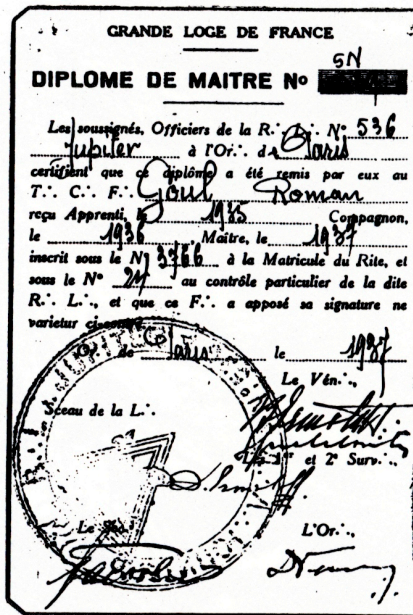 GRANDE LOGE DE FRANCE
5N
DIPLOME DE MAITRE No
Les soussignés, Officiers de la R∴ L∴ N° 536
Jupiter à l'Or∴ de Paris
certifient que ce diplôme a été remis par eux au
T∴ C∴ F∴ Goul Roman
reçu Apprenti, le 1935 Compagnon,
le 1936 Maître, le 1937
inscrit sous le N° 3366 à la Matricule du Rite, et
sous le N° au contrôle particulier de la dite
R∴ L∴, et que ce F∴ a apposé sa signature ne
varietur
de Paris le 1937
Le Vén∴,
Sceau de la L∴
et 2e Surv∴,
L'Or∴,